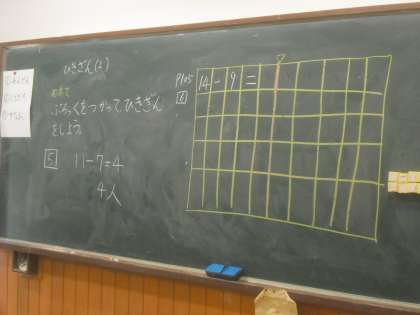 ひきざん(2)
めあて
ぶろっくをつかって、ひきざん
をしよう。
5 11-7=4
4人
P105
6
14-9=